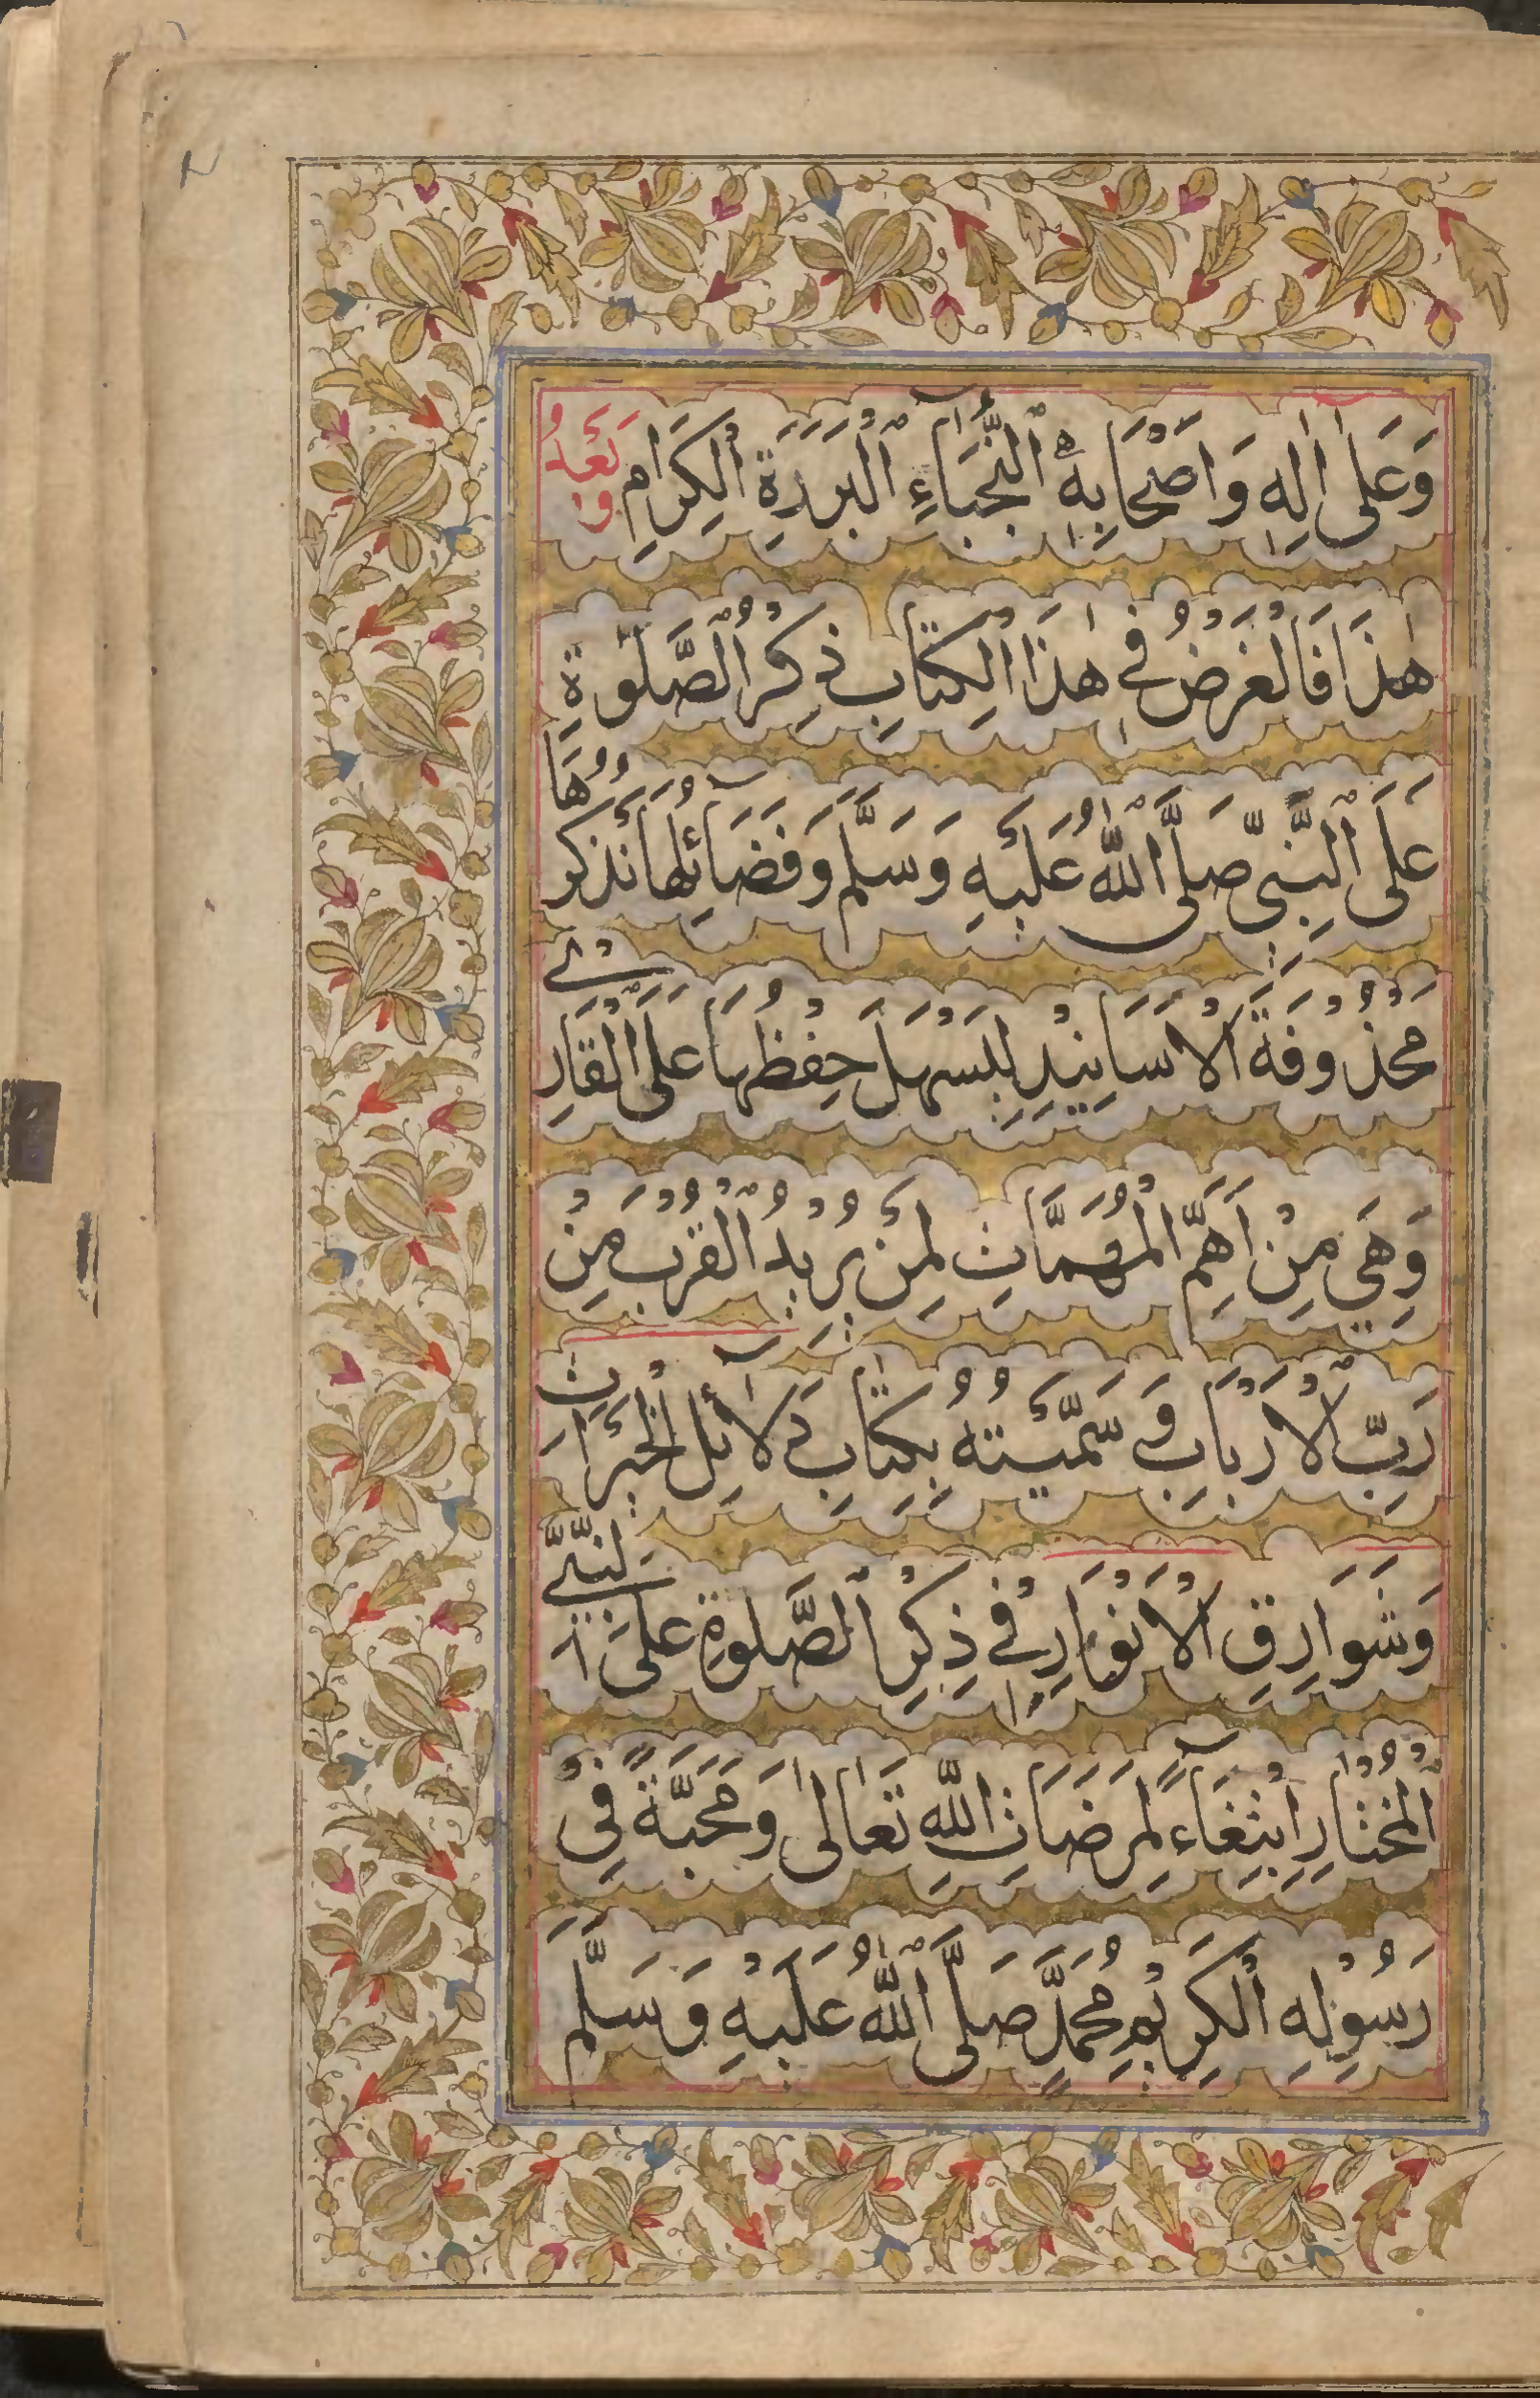 وَعَلىٰ اٰلِهٖ وَاَصْحَابِهِ النُّجَبَاۤءِ الْبَرَرَةِ الْكِرَامِ وَبَعْدُ
هٰذَا فَالْغَرَضُ فِي هٰذَا الْكِتَابِ ذِكْرُ الصَّلٰوةِ
عَلَى النَّبِيِّ صَلَّى اللّٰهُ عَلَيْهِ وَسَلَّمَ وَفَضَاۤئِلُهَا نَذْكُرُهَا
مَحْذُوْفَةَ الْاَسَانِيْدِ لِيَسْهُلَ حِفْظُهَا عَلَى الْقَارِئِ
وَهِيَ مِنْ اَهَمِّ الْمُهِمَّاتِ لِمَنْ يُرِيْدُ الْقُرْبَ مِنْ
رَبِّ الْاَرْبَابِ وَسَمَّيْتُهُ بِكِتَابِ دَلَاۤئِلِ الْخَيْرَاتِ
وَشَوَارِقِ الْاَنْوَارِ فِي ذِكْرِ الصَّلٰوةِ عَلَى النَّبِيِّ
الْمُخْتَارِ اِبْتِغَاۤءً لِمَرْضَاتِ اللّٰهِ تَعَالىٰ وَمَحَبَّةً فِيْ
رَسُوْلِهِ الْكَرِيْمِ مُحَمَّدٍ صَلَّى اللّٰهُ عَلَيْهِ وَسَلَّمَ